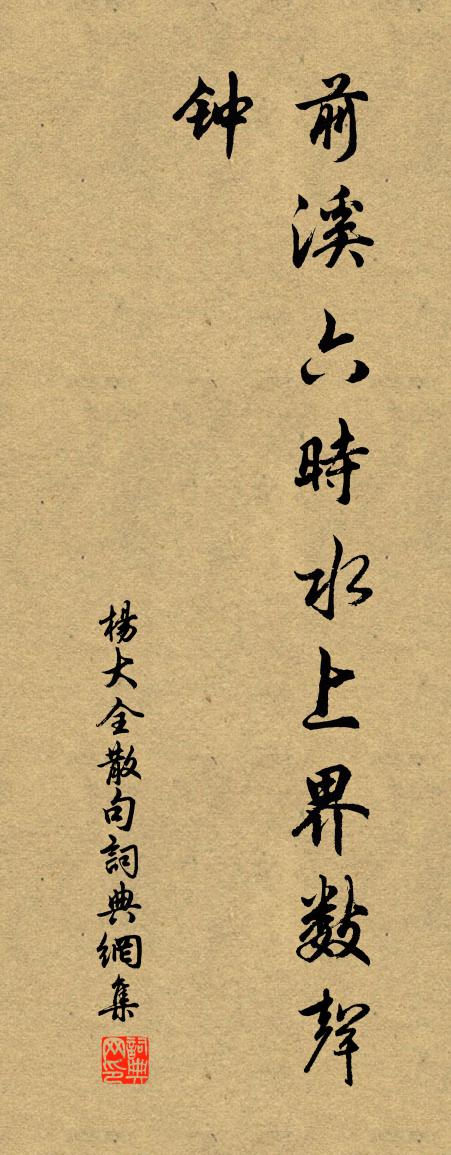 前溪六時水上界数聲
钟
楊大全散句詞典網集
詞典网印